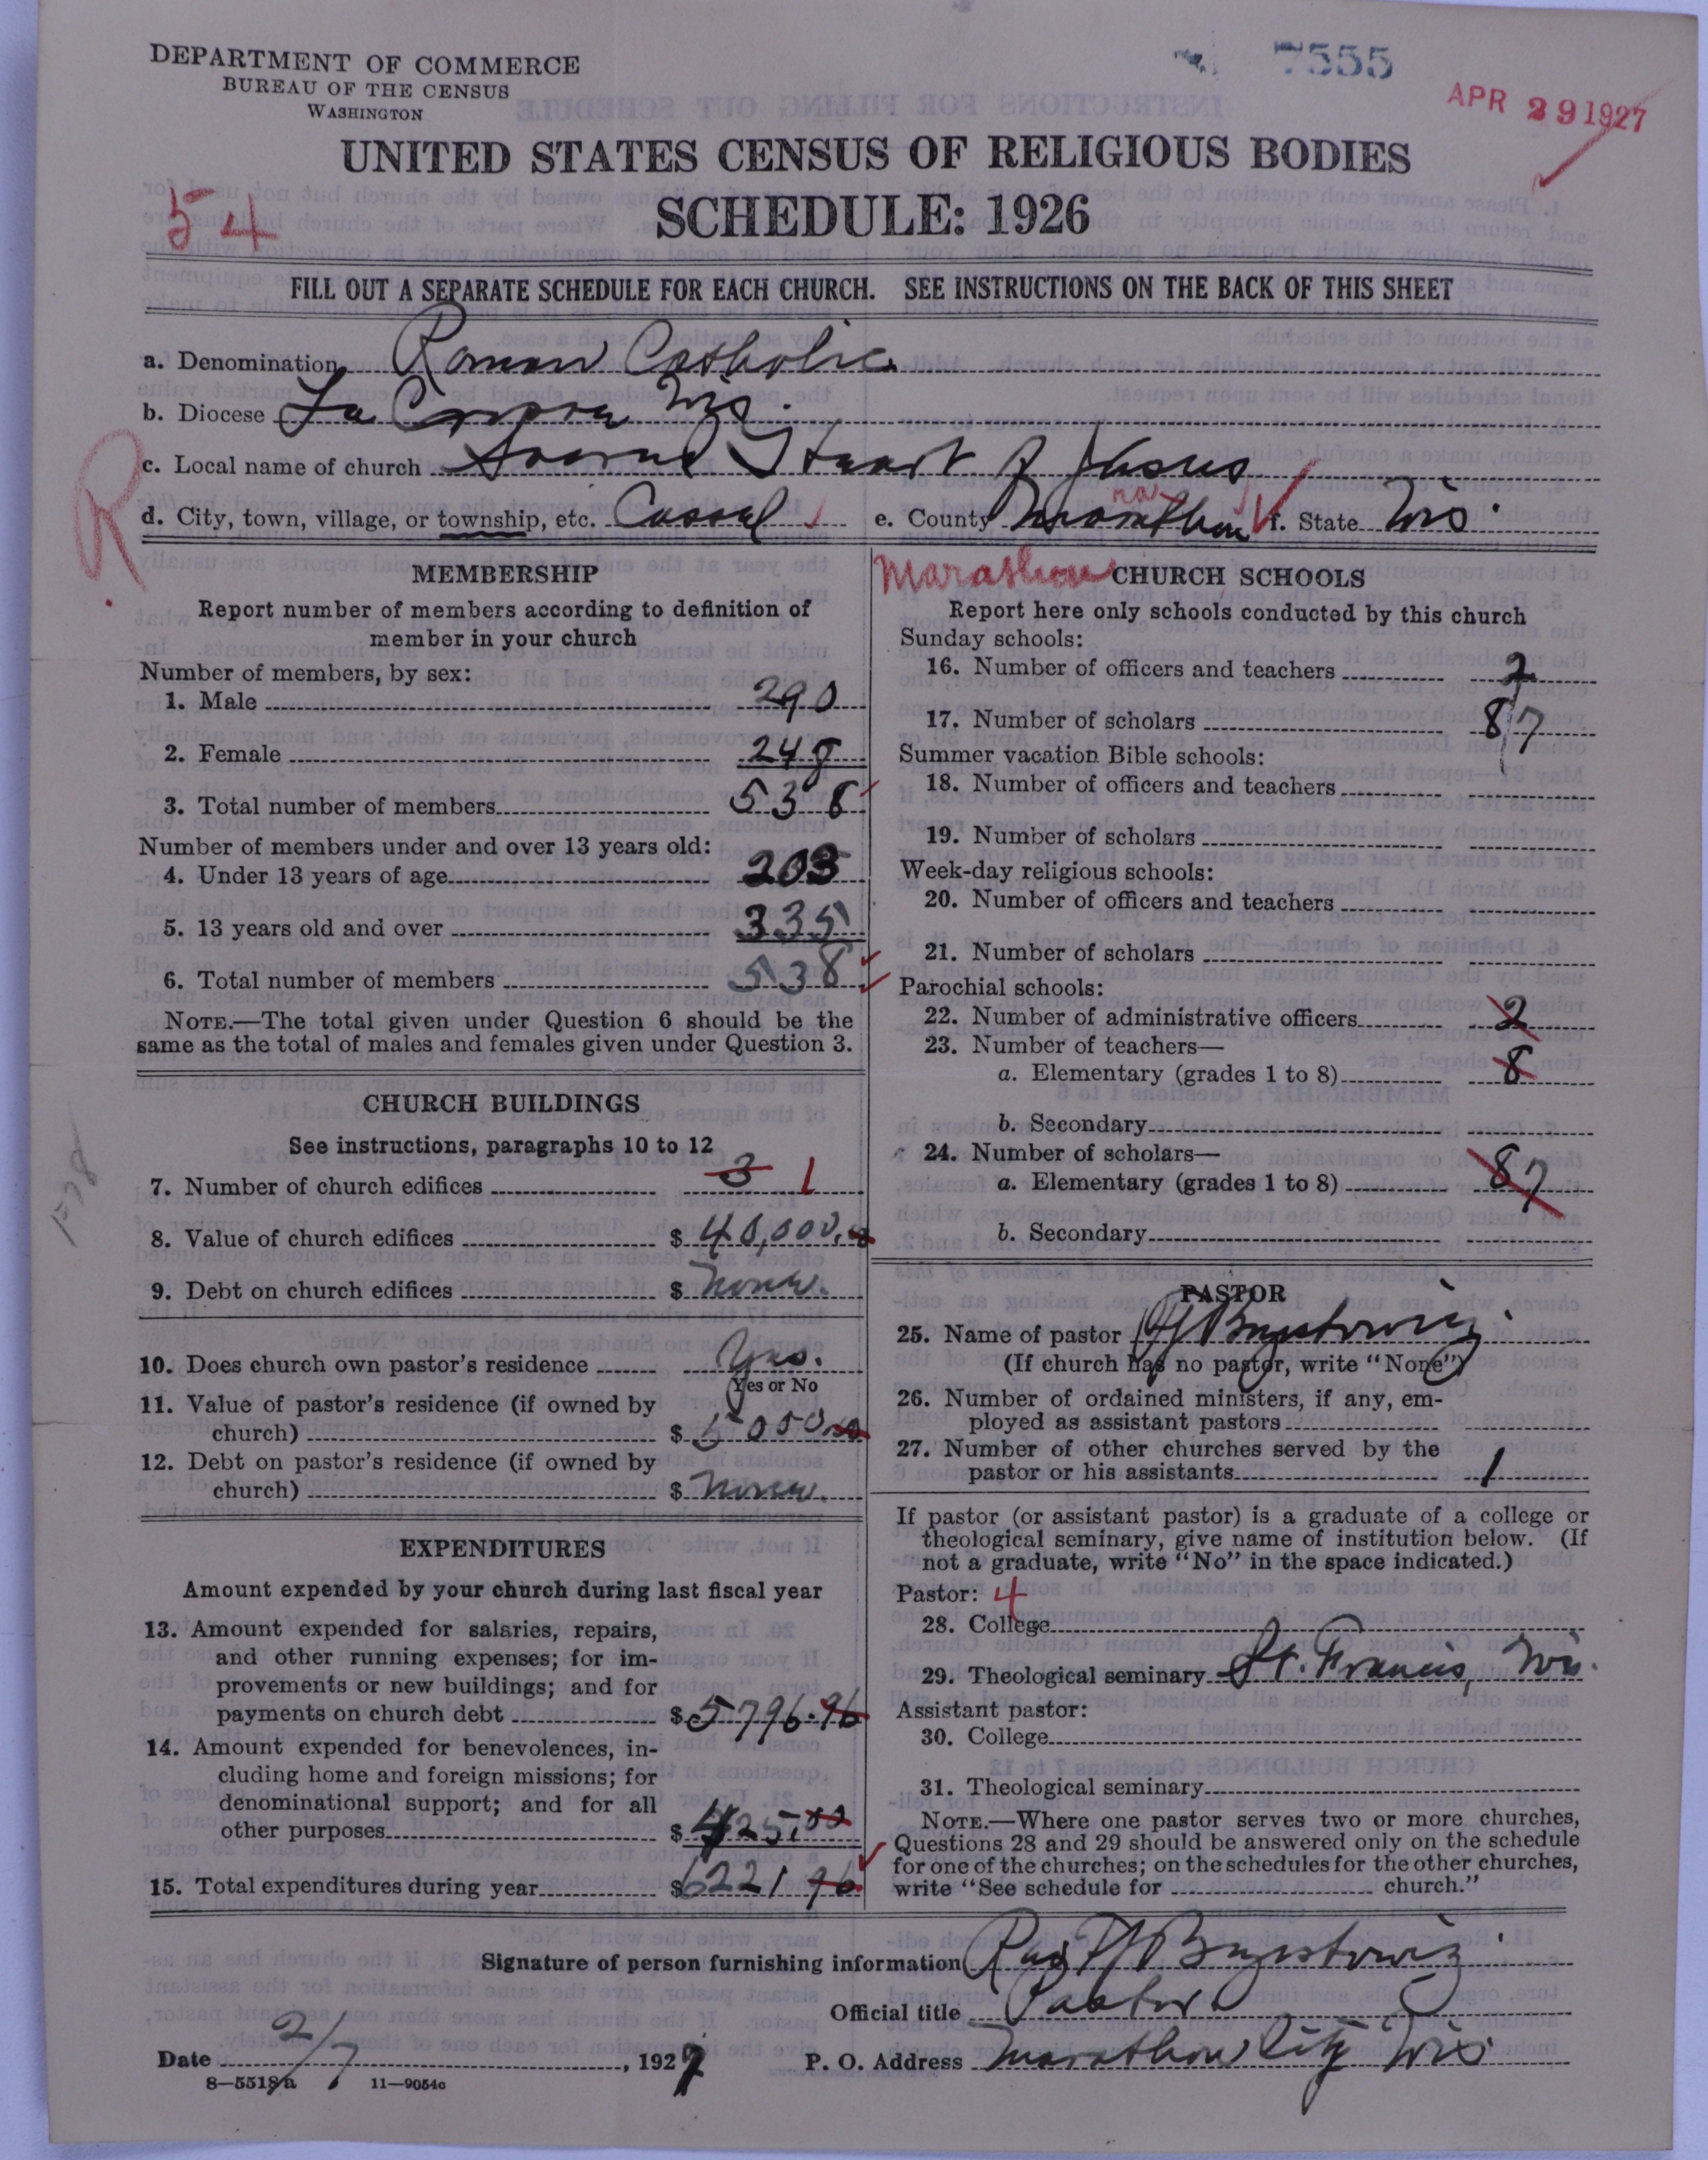 DEPARTMENT OF COMMERCE
BUREAU OF THE CENSUS
WASHINGTON
7555
APR 29 1927
UNITED STATES CENSUS OF RELIGIOUS BODIES
54
SCHEDULE: 1926
FILL OUT A SEPARATE SCHEDULE FOR EACH CHURCH. SEE INSTRUCTIONS ON THE BACK OF THIS SHEET
a. Denomination Roman Catholic
b. Diocese La Crosse Wis.
c. Local name of church Sacred Heart of Jesus
R
d. City, town, village, or township, etc. Cassel e. County Marathon f. State Wis.
Marathon
MEMBERSHIP
Report number of members according to definition of
member in your church
Number of members, by sex:
1. Male 290
2. Female 248
3. Total number of members 538
Number of members under and over 13 years old:
4. Under 13 years of age 203
5. 13 years old and over 335
6. Total number of members 538
NOTE.—The total given under Question 6 should be the
same as the total of males and females given under Question 3.
CHURCH BUILDINGS
See instructions, paragraphs 10 to 12
7. Number of church edifices 3 1
8. Value of church edifices $ 40,000.
9. Debt on church edifices $ None.
10. Does church own pastor's residence Yes.
Yes or No
11. Value of pastor's residence (if owned by
church) $ 5000.00
12. Debt on pastor's residence (if owned by
church) $ None.
EXPENDITURES
Amount expended by your church during last fiscal year
13. Amount expended for salaries, repairs,
and other running expenses; for im-
provements or new buildings; and for
payments on church debt $ 5796.96
14. Amount expended for benevolences, in-
cluding home and foreign missions; for
denominational support; and for all
other purposes $ 425.00
15. Total expenditures during year $ 6221 96
CHURCH SCHOOLS
Report here only schools conducted by this church
Sunday schools:
16. Number of officers and teachers 2
17. Number of scholars 87
Summer vacation Bible schools:
18. Number of officers and teachers
19. Number of scholars
Week-day religious schools:
20. Number of officers and teachers
21. Number of scholars
Parochial schools:
22. Number of administrative officers 2
23. Number of teachers—
a. Elementary (grades 1 to 8) 8
b. Secondary
24. Number of scholars—
a. Elementary (grades 1 to 8) 87
b. Secondary
PASTOR
25. Name of pastor
(If church has no pastor, write "None")
26. Number of ordained ministers, if any, em-
ployed as assistant pastors
27. Number of other churches served by the
pastor or his assistants 1
If pastor (or assistant pastor) is a graduate of a college or
theological seminary, give name of institution below. (If
not a graduate, write "No" in the space indicated.)
Pastor: 4
28. College
29. Theological seminary St. Francis, Wis.
Assistant pastor:
30. College
31. Theological seminary
NOTE.—Where one pastor serves two or more churches,
Questions 28 and 29 should be answered only on the schedule
for one of the churches; on the schedules for the other churches,
write "See schedule for church."
Signature of person furnishing information
Official title Pastor
Date 2/7, 1927 P. O. Address Marathon City Wis
8—5518a 11—9054c